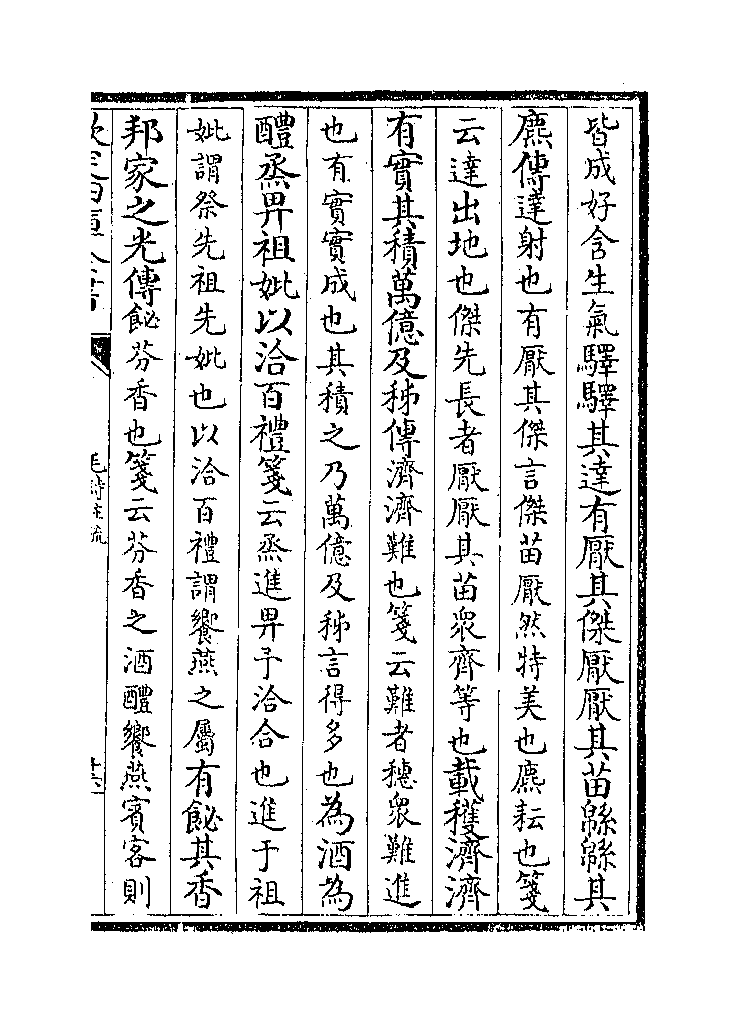 皆成好含生氣驛驛其達有厭其傑厭厭其苗緜緜其
麃傳達射也有厭其傑言傑苗厭然特美也麃耘也箋
云達出地也傑先長者厭厭其苗衆齊等也載穫濟濟
有實其積萬億及秭傳濟濟難也箋云難者穗衆難進
也有實實成也其積之乃萬億及秭言得多也為酒為
醴烝畀祖妣以洽百禮箋云烝進畀予洽合也進于祖
妣謂祭先祖先妣也以洽百禮謂饗燕之屬有飶其香
邦家之光傳飶芬香也箋云芬香之酒醴饗燕賓客則
毛詩注疏